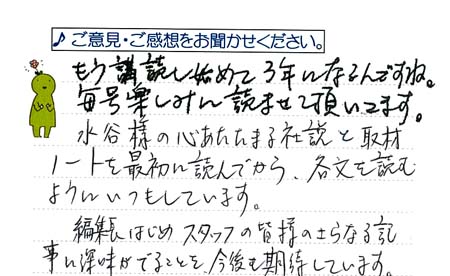 ♪ ご意見・ご感想をお聞かせください。
もう購読し始めて3年になるんですね。
毎号楽しみに読ませて頂いてます。
水谷様の心あたたまる社説と取材
ノートを最初に読んでから、各文を読む
ようにいつもしています。
編集長はじめスタッフの皆様のさらなる記
事に深味がでることを今後も期待しています。